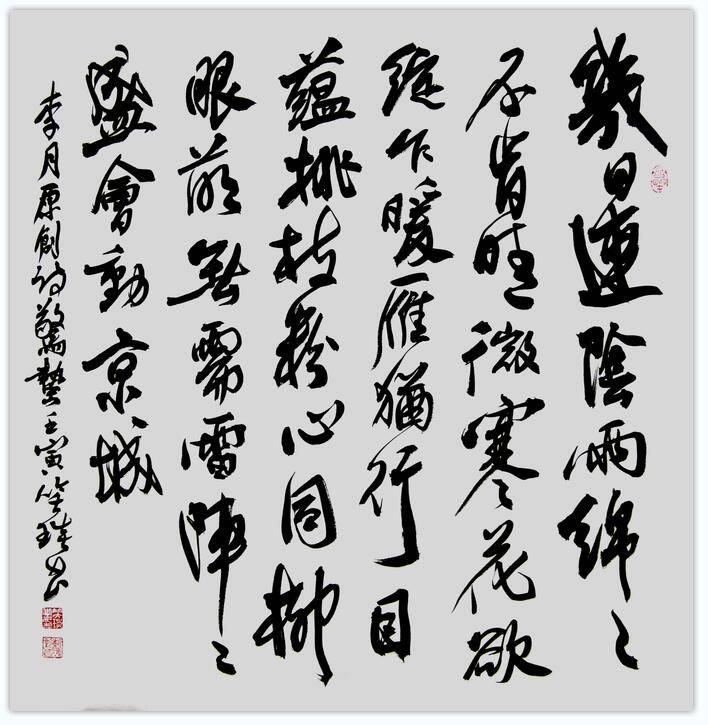 幾日連陰雨綿々
不肯晴微寒花欲
綻乍暖雁猶行目
蘊桃枝粉心同柳
眼萌無需雷陣々
盛會動京城
李月原創詩驚蟄壬寅